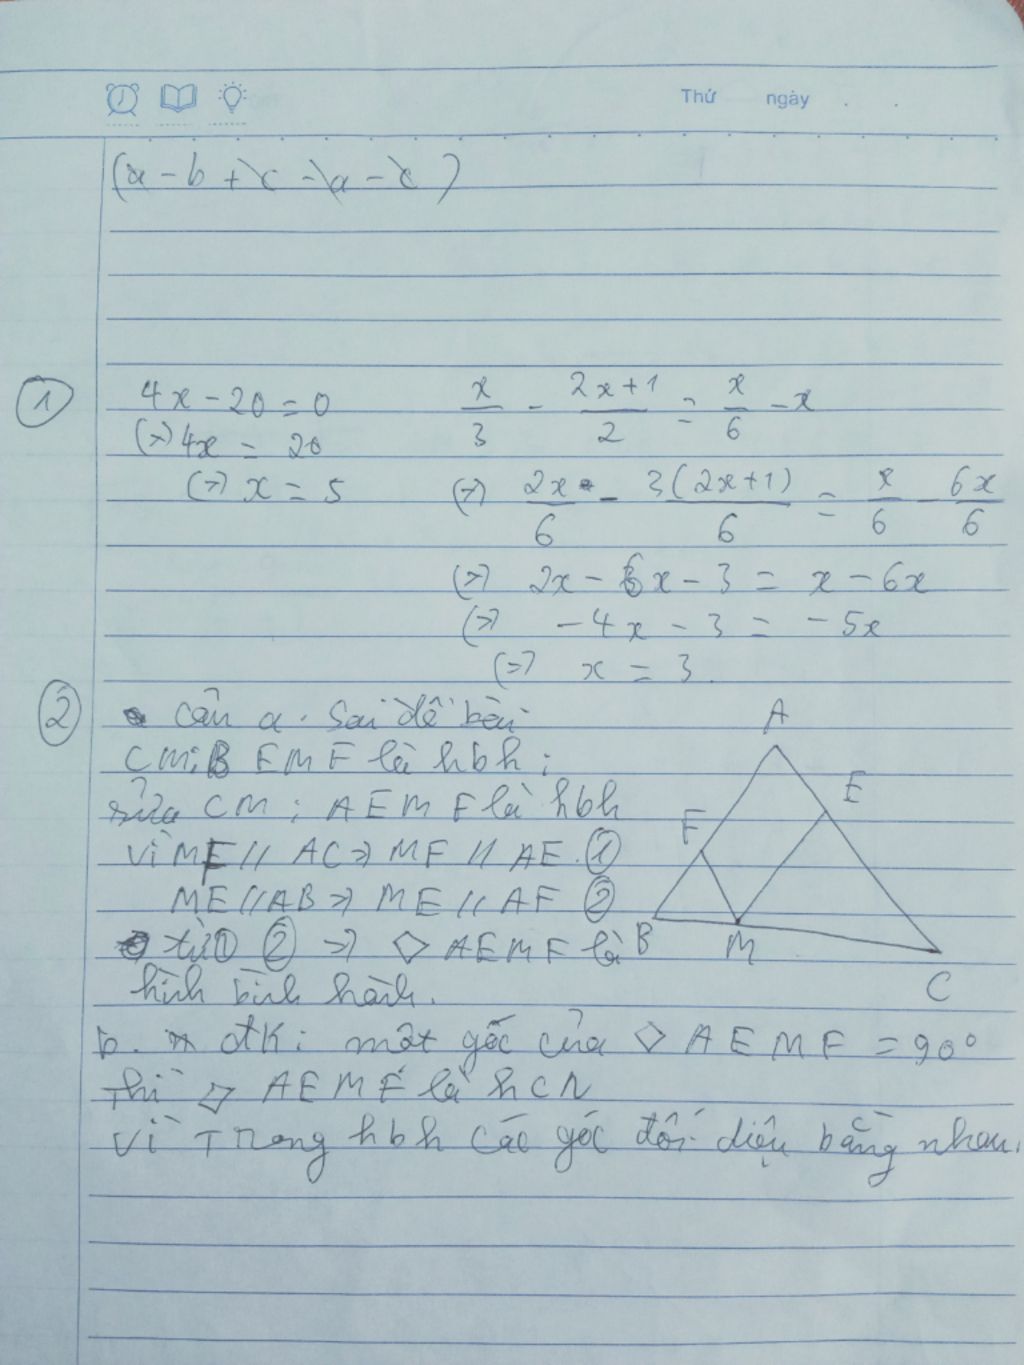 Thứ ngày
(a - b + c - a - c)
①
4x - 20 = 0
(=) 4x = 20
(=) x = 5
x/3 - (2x+1)/2 = x/6 - x
(=) 2x/6 - 3(2x+1)/6 = x/6 - 6x/6
(=) 2x - 6x - 3 = x - 6x
(=) -4x - 3 = -5x
(=) x = 3.
②
câu a. Sai đề bài
CM: B EMF là hbh ;
sửa CM : AEMF là hbh
vì MF // AC => MF // AE. ①
ME // AB => ME // AF ②
từ ① ② => ◇ AEMF là
hình bình hành.
A
E
F
B
M
C
b. đk: một góc của ◇ AEMF = 90°
thì ◇ AEMF là hCN
Vì Trong hbh các góc đối diện bằng nhau.